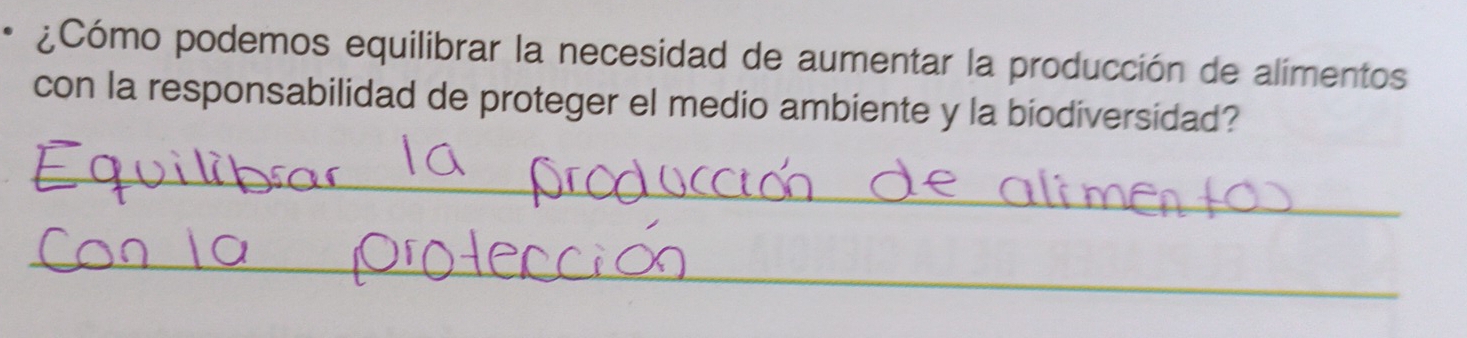 • ¿Cómo podemos equilibrar la necesidad de aumentar la producción de alimentos
con la responsabilidad de proteger el medio ambiente y la biodiversidad?
Equilibrar la producción de alimentos
con la protección